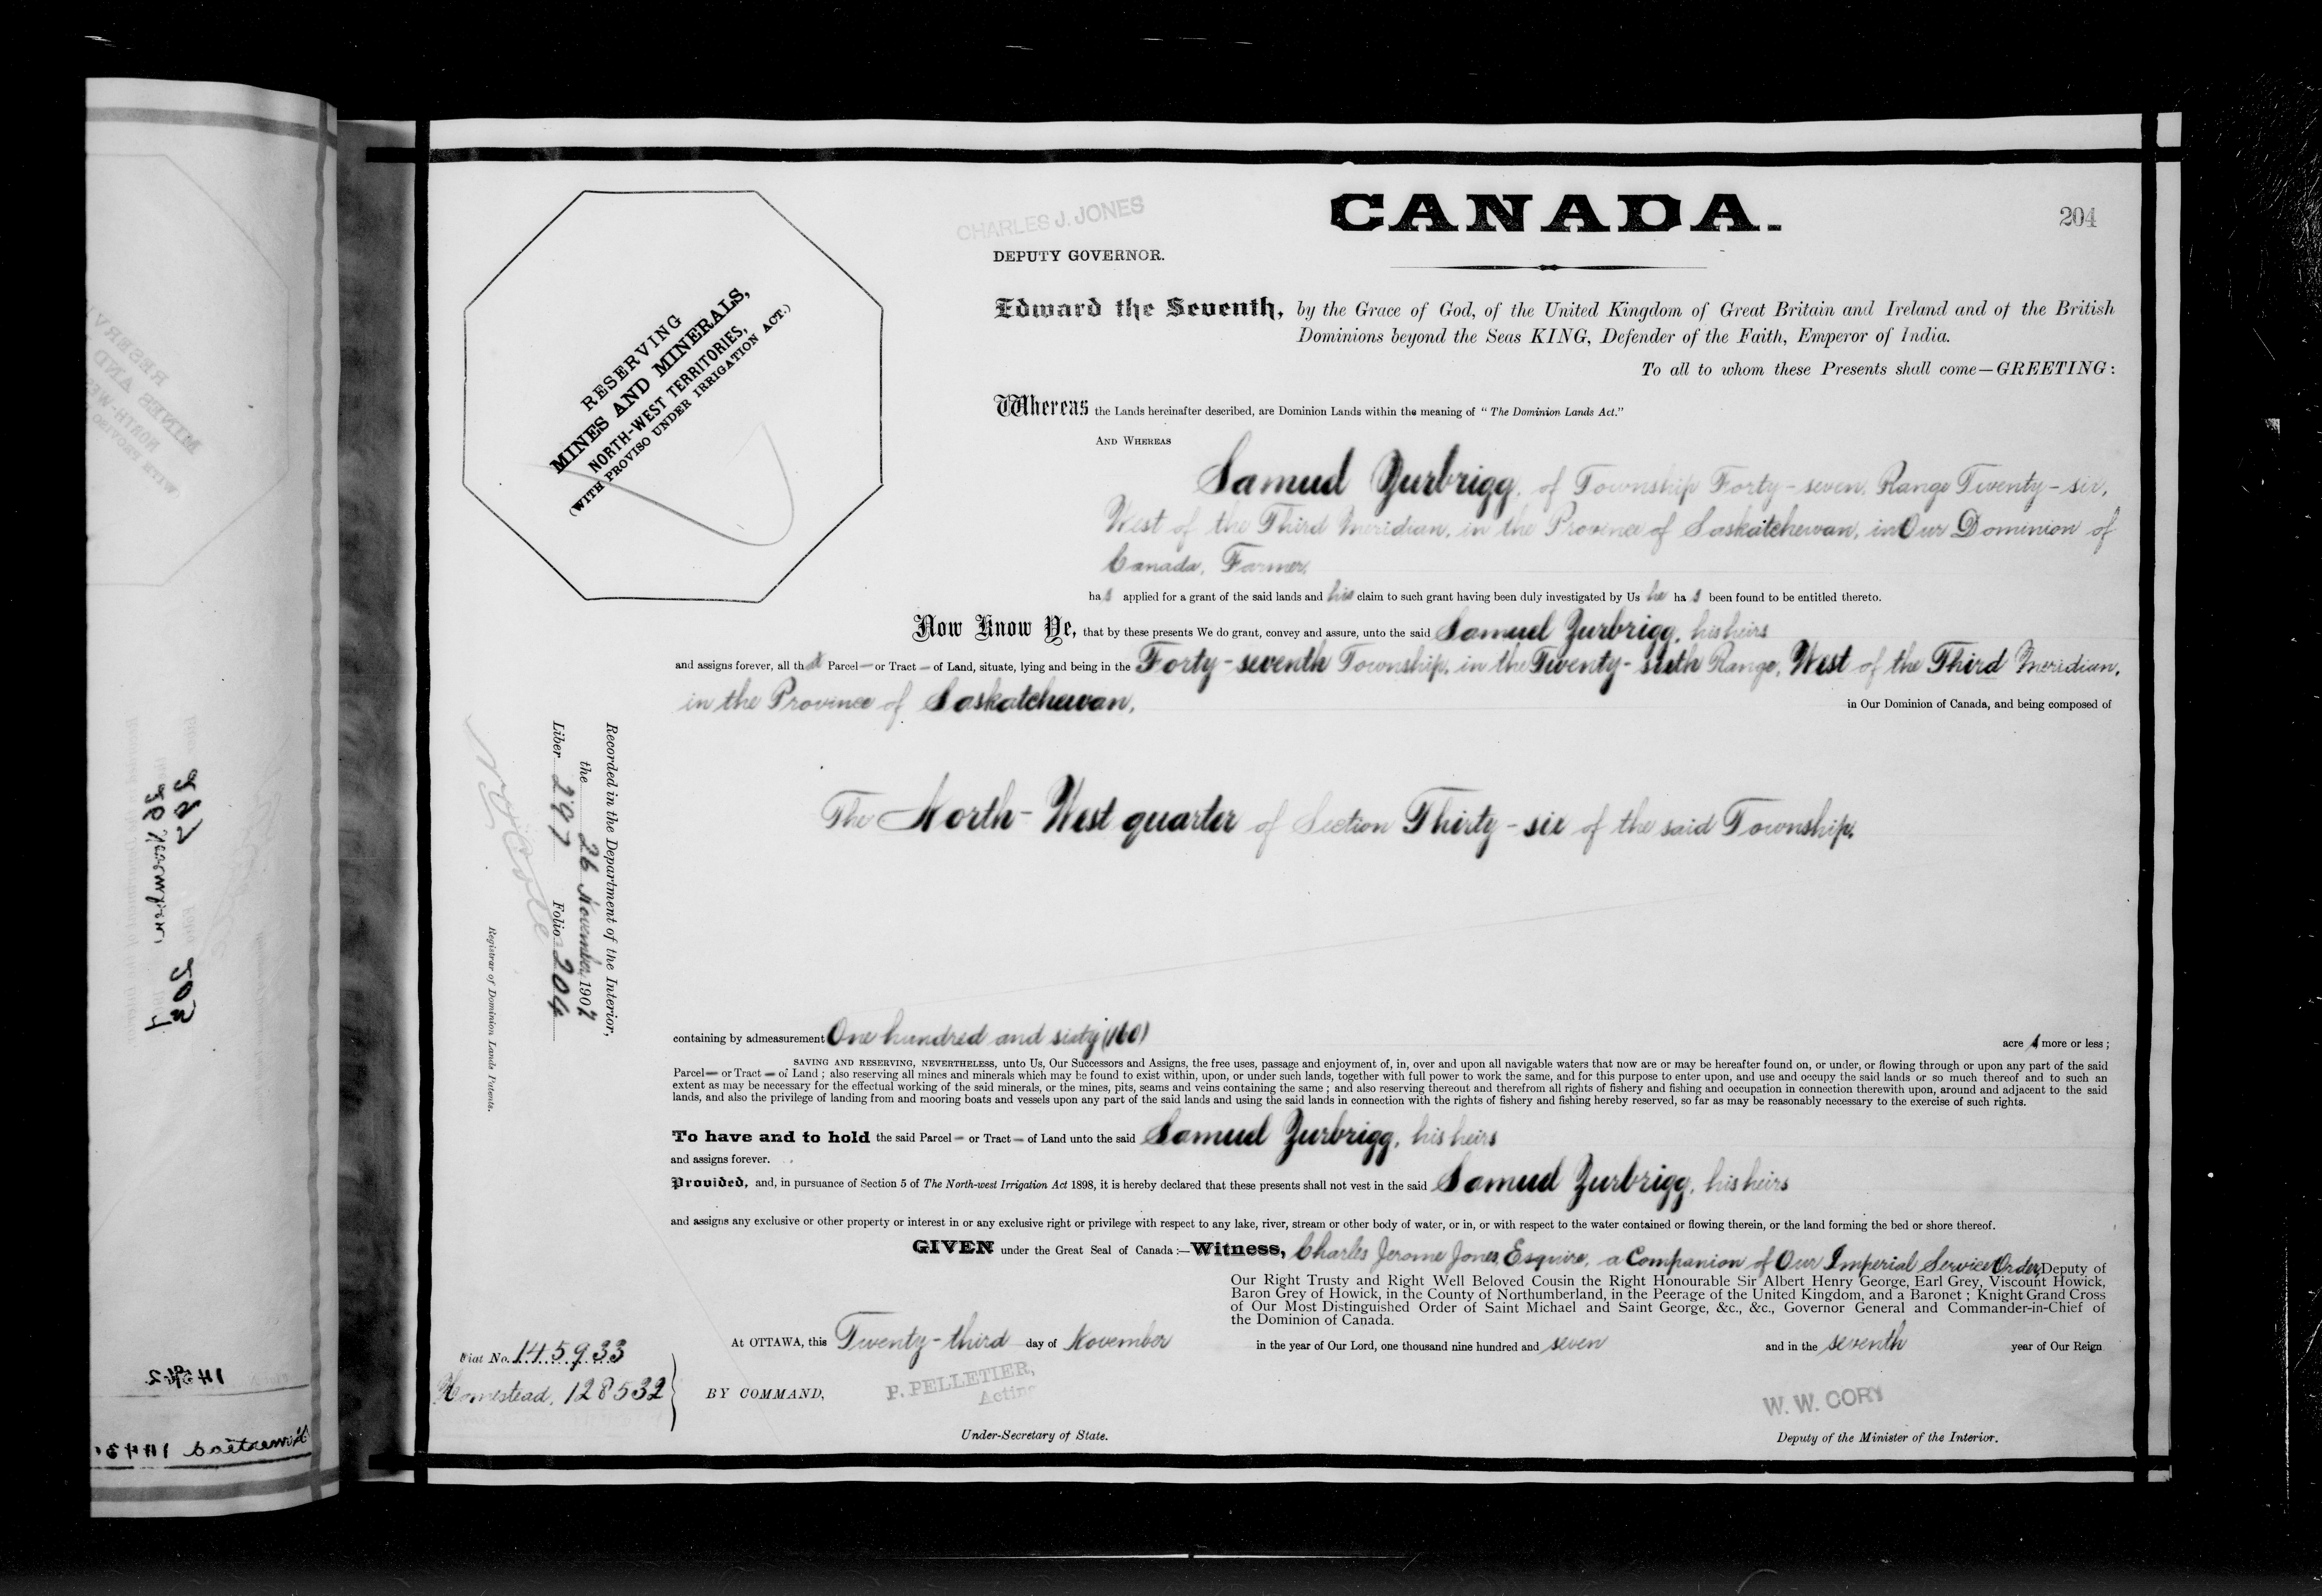 CHARLES J. JONES
DEPUTY GOVERNOR.
CANADA.
204
RESERVING
MINES AND MINERALS,
NORTH-WEST TERRITORIES,
(WITH PROVISO UNDER IRRIGATION ACT.)
Edward the Seventh, by the Grace of God, of the United Kingdom of Great Britain and Ireland and of the British
Dominions beyond the Seas KING, Defender of the Faith, Emperor of India.
To all to whom these Presents shall come—GREETING:
Whereas the Lands hereinafter described, are Dominion Lands within the meaning of "The Dominion Lands Act."
AND WHEREAS
Samuel Zurbrigg, of Township Forty-seven, Range Twenty-six,
West of the Third Meridian, in the Province of Saskatchewan, in Our Dominion of
Canada, Farmer,
has applied for a grant of the said lands and his claim to such grant having been duly investigated by Us he has been found to be entitled thereto.
Now Know Ye, that by these presents We do grant, convey and assure, unto the said Samuel Zurbrigg, his heirs
and assigns forever, all that Parcel— or Tract— of Land, situate, lying and being in the Forty-seventh Township, in the Twenty-sixth Range, West of the Third Meridian,
in the Province of Saskatchewan, in Our Dominion of Canada, and being composed of
The North-West quarter of Section Thirty-six of the said Township,
Recorded in the Department of the Interior,
the 26 November, 1907
Liber 297 Folio 204
Registrar of Dominion Lands Patents.
containing by admeasurement One hundred and sixty (160) acres more or less;
SAVING AND RESERVING, NEVERTHELESS, unto Us, Our Successors and Assigns, the free uses, passage and enjoyment of, in, over and upon all navigable waters that now are or may be hereafter found on, or under, or flowing through or upon any part of the said
Parcel— or Tract— of Land; also reserving all mines and minerals which may be found to exist within, upon, or under such lands, together with full power to work the same, and for this purpose to enter upon, and use and occupy the said lands or so much thereof and to such an
extent as may be necessary for the effectual working of the said minerals, or the mines, pits, seams and veins containing the same; and also reserving thereout and therefrom all rights of fishery and fishing and occupation in connection therewith upon, around and adjacent to the said
lands, and also the privilege of landing from and mooring boats and vessels upon any part of the said lands and using the said lands in connection with the rights of fishery and fishing hereby reserved, so far as may be reasonably necessary to the exercise of such rights.
To have and to hold the said Parcel— or Tract— of Land unto the said Samuel Zurbrigg, his heirs
and assigns forever.
Provided, and, in pursuance of Section 5 of The North-west Irrigation Act 1898, it is hereby declared that these presents shall not vest in the said Samuel Zurbrigg, his heirs
and assigns any exclusive or other property or interest in or any exclusive right or privilege with respect to any lake, river, stream or other body of water, or in, or with respect to the water contained or flowing therein, or the land forming the bed or shore thereof.
GIVEN under the Great Seal of Canada:—Witness, Charles Jerome Jones, Esquire, a Companion of Our Imperial Service Order, Deputy of
Our Right Trusty and Right Well Beloved Cousin the Right Honourable Sir Albert Henry George, Earl Grey, Viscount Howick,
Baron Grey of Howick, in the County of Northumberland, in the Peerage of the United Kingdom, and a Baronet; Knight Grand Cross
of Our Most Distinguished Order of Saint Michael and Saint George, &c., &c., Governor General and Commander-in-Chief of
the Dominion of Canada.
At OTTAWA, this Twenty-third day of November in the year of Our Lord, one thousand nine hundred and seven and in the seventh year of Our Reign
Fiat No. 145933
Homestead, 128532
BY COMMAND,
P. PELLETIER,
Acting
Under-Secretary of State.
W. W. CORY
Deputy of the Minister of the Interior.